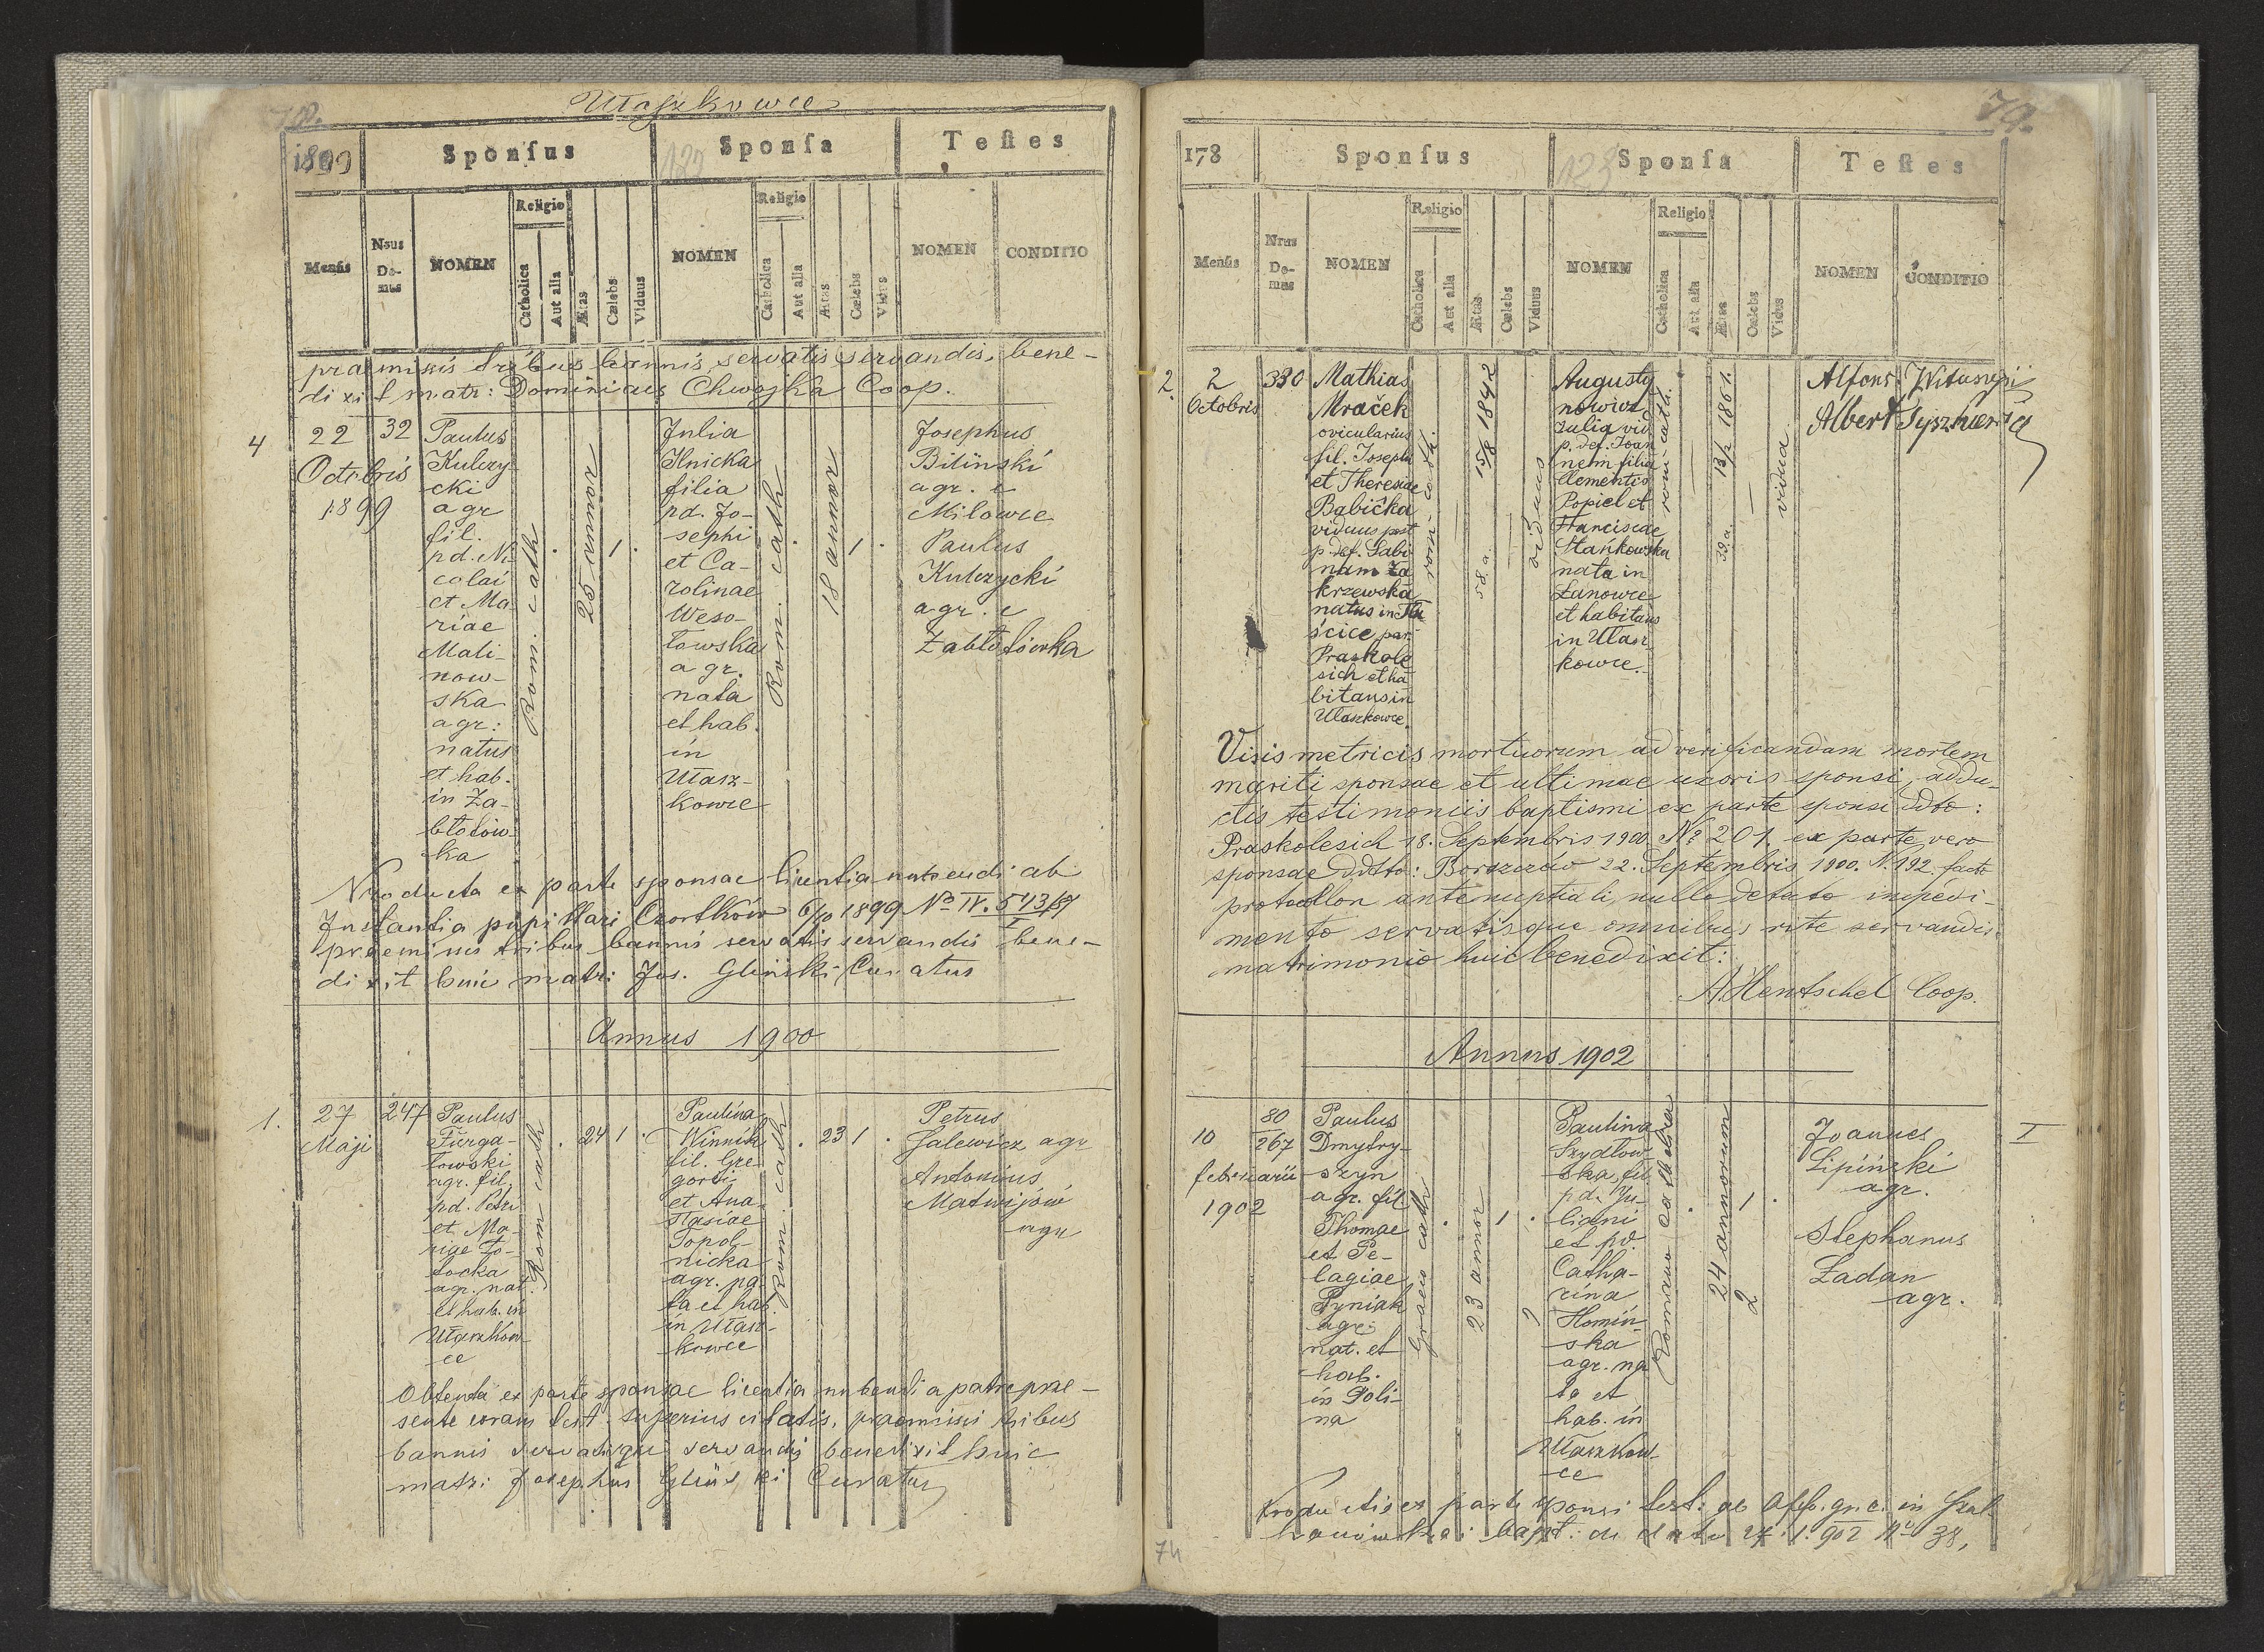 78.
Ułaszkowce
1899
Sponſus
Sponſa
122
Teſtes
Menſis
Nrus Domus
NOMEN
Religio
Catholica
Aut alia
Ætas
Cælebs
Viduus
NOMEN
Religio
Catholica
Aut alia
Ætas
Cælebs
Vidua
NOMEN
CONDITIO
praemissis tribus bannis, servatis servandis, bene-
dixit matr: Dominicus Chwojka Coop.
4
22
Octobris
1899
32
Paulus
Kulczy-
cki
agr
fil.
pd. Ni-
colai
et Ma
riae
Mali-
now-
ska
agr:
natus
et hab.
in Za-
błotów-
ka
Rom. cath
25 annor
1
Julia
Ilnicka
filia
pd. Jo-
sephi
et Ca-
rolinae
Weso-
łowska
agr.
nata
et hab.
in
Ułasz-
kowce
Rom. cath
18 annor
1
Josephus
Biliński
agr. e
Milowce
Paulus
Kulczycki
agr. e
Zabłotówka
Producta ex parte sponsae licentia nubendi ab
Instantia pupillari Czortków 6/10 1899 No IV. 543/97
praemissis tribus bannis servatis servandis bene-
dixit huic matr: Jos. Gliński, Curatus
Annus 1900
1.
27
Maji
247
Paulus
Furga-
łowski
agr. fil.
pd. Petri
et Ma-
riae Po-
tocka
agr. nat.
et hab. in
Ułaszkow-
ce
Rom cath
24
1
Paulina
Winnik
fil. Gre-
gorii
et Ana-
stasiae
Topol-
nicka
agr. na-
ta et hab.
in Ułasz-
kowce
Rom. cath
23
1
Petrus
Jalewicz agr
Antonius
Matwijów
agr
Obtenta ex parte sponsae licentia nubendi a patre prae-
sente coram test. superius citatis, praemissis tribus
bannis servatisque servandis benedixit huic
matr: Josephus Gliński Curatus
79.
178
Sponſus
Sponſa
123
Teſtes
Menſis
Nrus Domus
NOMEN
Religio
Catholica
Aut alia
Ætas
Cælebs
Viduus
NOMEN
Religio
Catholica
Aut alia
Ætas
Cælebs
Vidua
NOMEN
CONDITIO
2.
2
Octobris
330
Mathias
Mraček
ovicularius
fil. Josephi
et Theresiae
Babička
viduus post
p. def. Sabi
nam Za
krzewska
natus in
ścice, par.
Praskole
sich et ha
bitans in
Ułaszkowce.
rom. cath.
15/8 1842
58. a.
viduus
Augusty
nowicz
Julia vid.
p. def. Joan
nem filia
Clementis
Popiel et
Franciscae
Stańkowska
nata in
Łanowce
et habitans
in Ułasz
kowce.
rom. cath.
13/2 1861.
39 a.
vidua
Alfons Witusyński
Albert
Visis metricis mortuorum ad verificandam mortem
mariti sponsae et ultimae uxoris sponsi, addu-
ctis testimoniis baptismi ex parte sponsi ddto:
Praskolesich 18. Septembris 1900 No 201. ex parte vero
sponsae ddto: Borszczów 22. Septembris 1900. N. 192. facto
protocollon antenuptiali, nullo detecto impedi-
mento servatisque omnibus rite servandis.
matrimonio huic benedixit:
A. Hentschel Coop.
Annus 1902
10
februarii
1902
80
267
Paulus
Dmytry-
szyn
agr. fil.
Thomae
et Pe-
lagiae
Pyniak
agr.
nat. et
hab.
in Poli-
na
Graeco cath
23 annor
1
Paulina
Szydłow-
ska, fil.
pd. Ju-
liani
et pd.
Catha-
rina
Homin-
ska
agr. na
ta et
hab. in
Ułaszkow-
ce
Romano catholica
24 annorum
2
1
Joannes
Lipiński
agr.
Stephanus
Ładan
agr.
I
Productis ex parte sponsi test: ab Offo. gr. c. in
bapt: de dato 27. 1. 902 No 38,
74